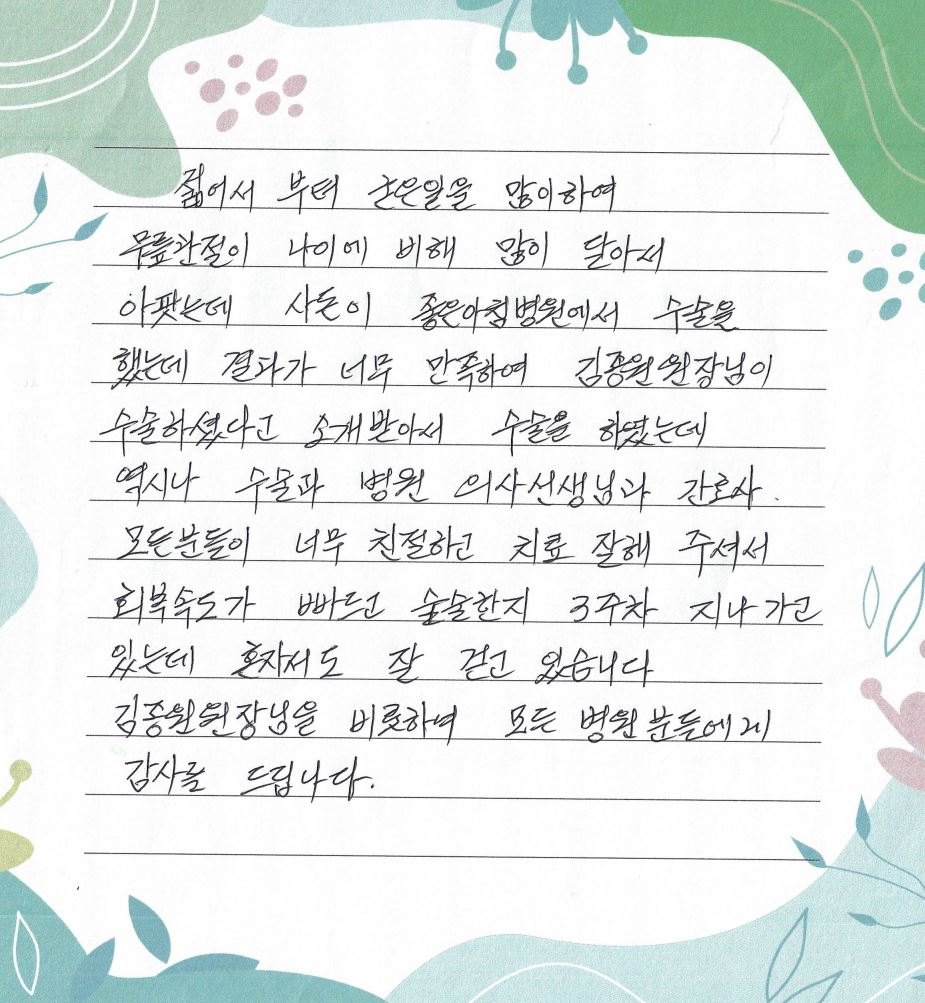 젊어서 부터 굳은일을 많이하여
무릎관절이 나이에 비해 많이 달아서
아팠는데 사돈이 좋은아침병원에서 수술을
했는데 결과가 너무 만족하여 김종원원장님이
수술하셨다고 소개받아서 수술을 하였는데
역시나 수술과 병원 의사선생님과 간호사.
모든분들이 너무 친절하고 치료 잘해 주셔서
회복속도가 빠르고 수술한지 3주차 지나가고
있는데 혼자서도 잘 걷고 있습니다
김종원원장님을 비롯하여 모든 병원분들에게
감사를 드립니다.